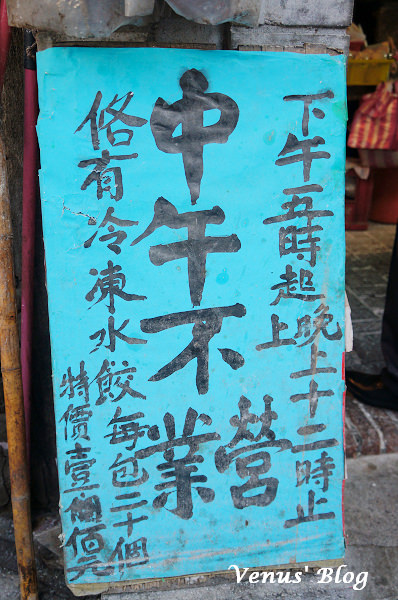 下午五時起晚上十二時止
上
中午不營業
佫有冷凍水餃每包二十個
特價壹佰元
Venus' Blog